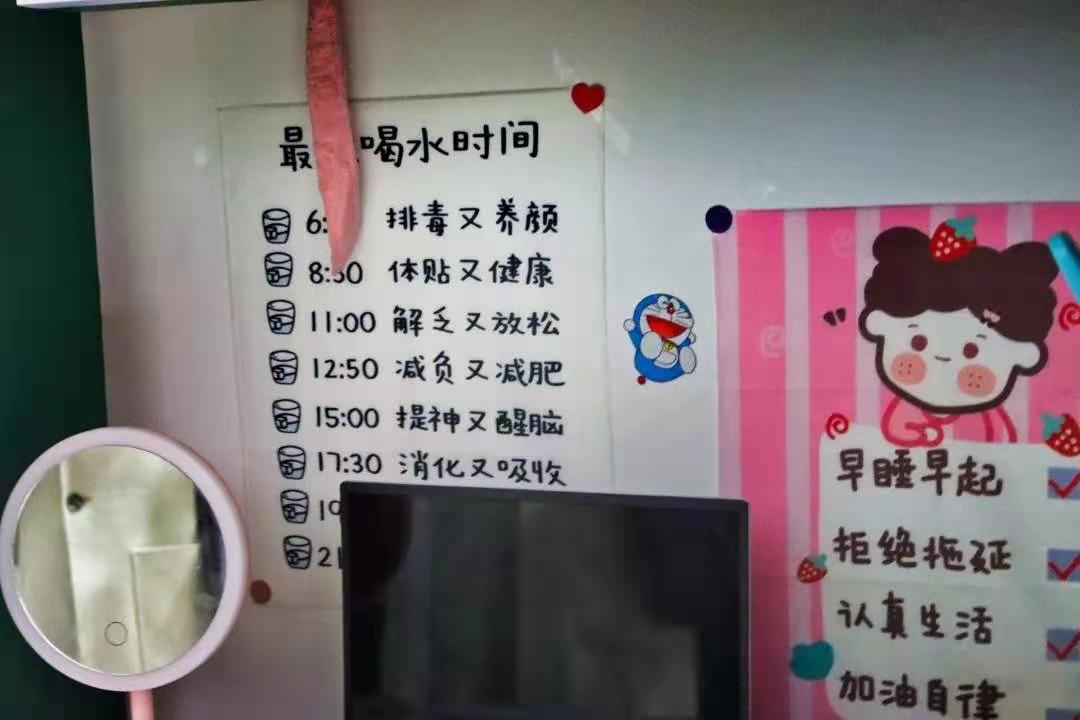 最 喝水时间
6: 排毒又养颜
8:30 体贴又健康
11:00 解乏又放松
12:50 减负又减肥
15:00 提神又醒脑
17:30 消化又吸收
早睡早起
拒绝拖延
认真生活
加油自律